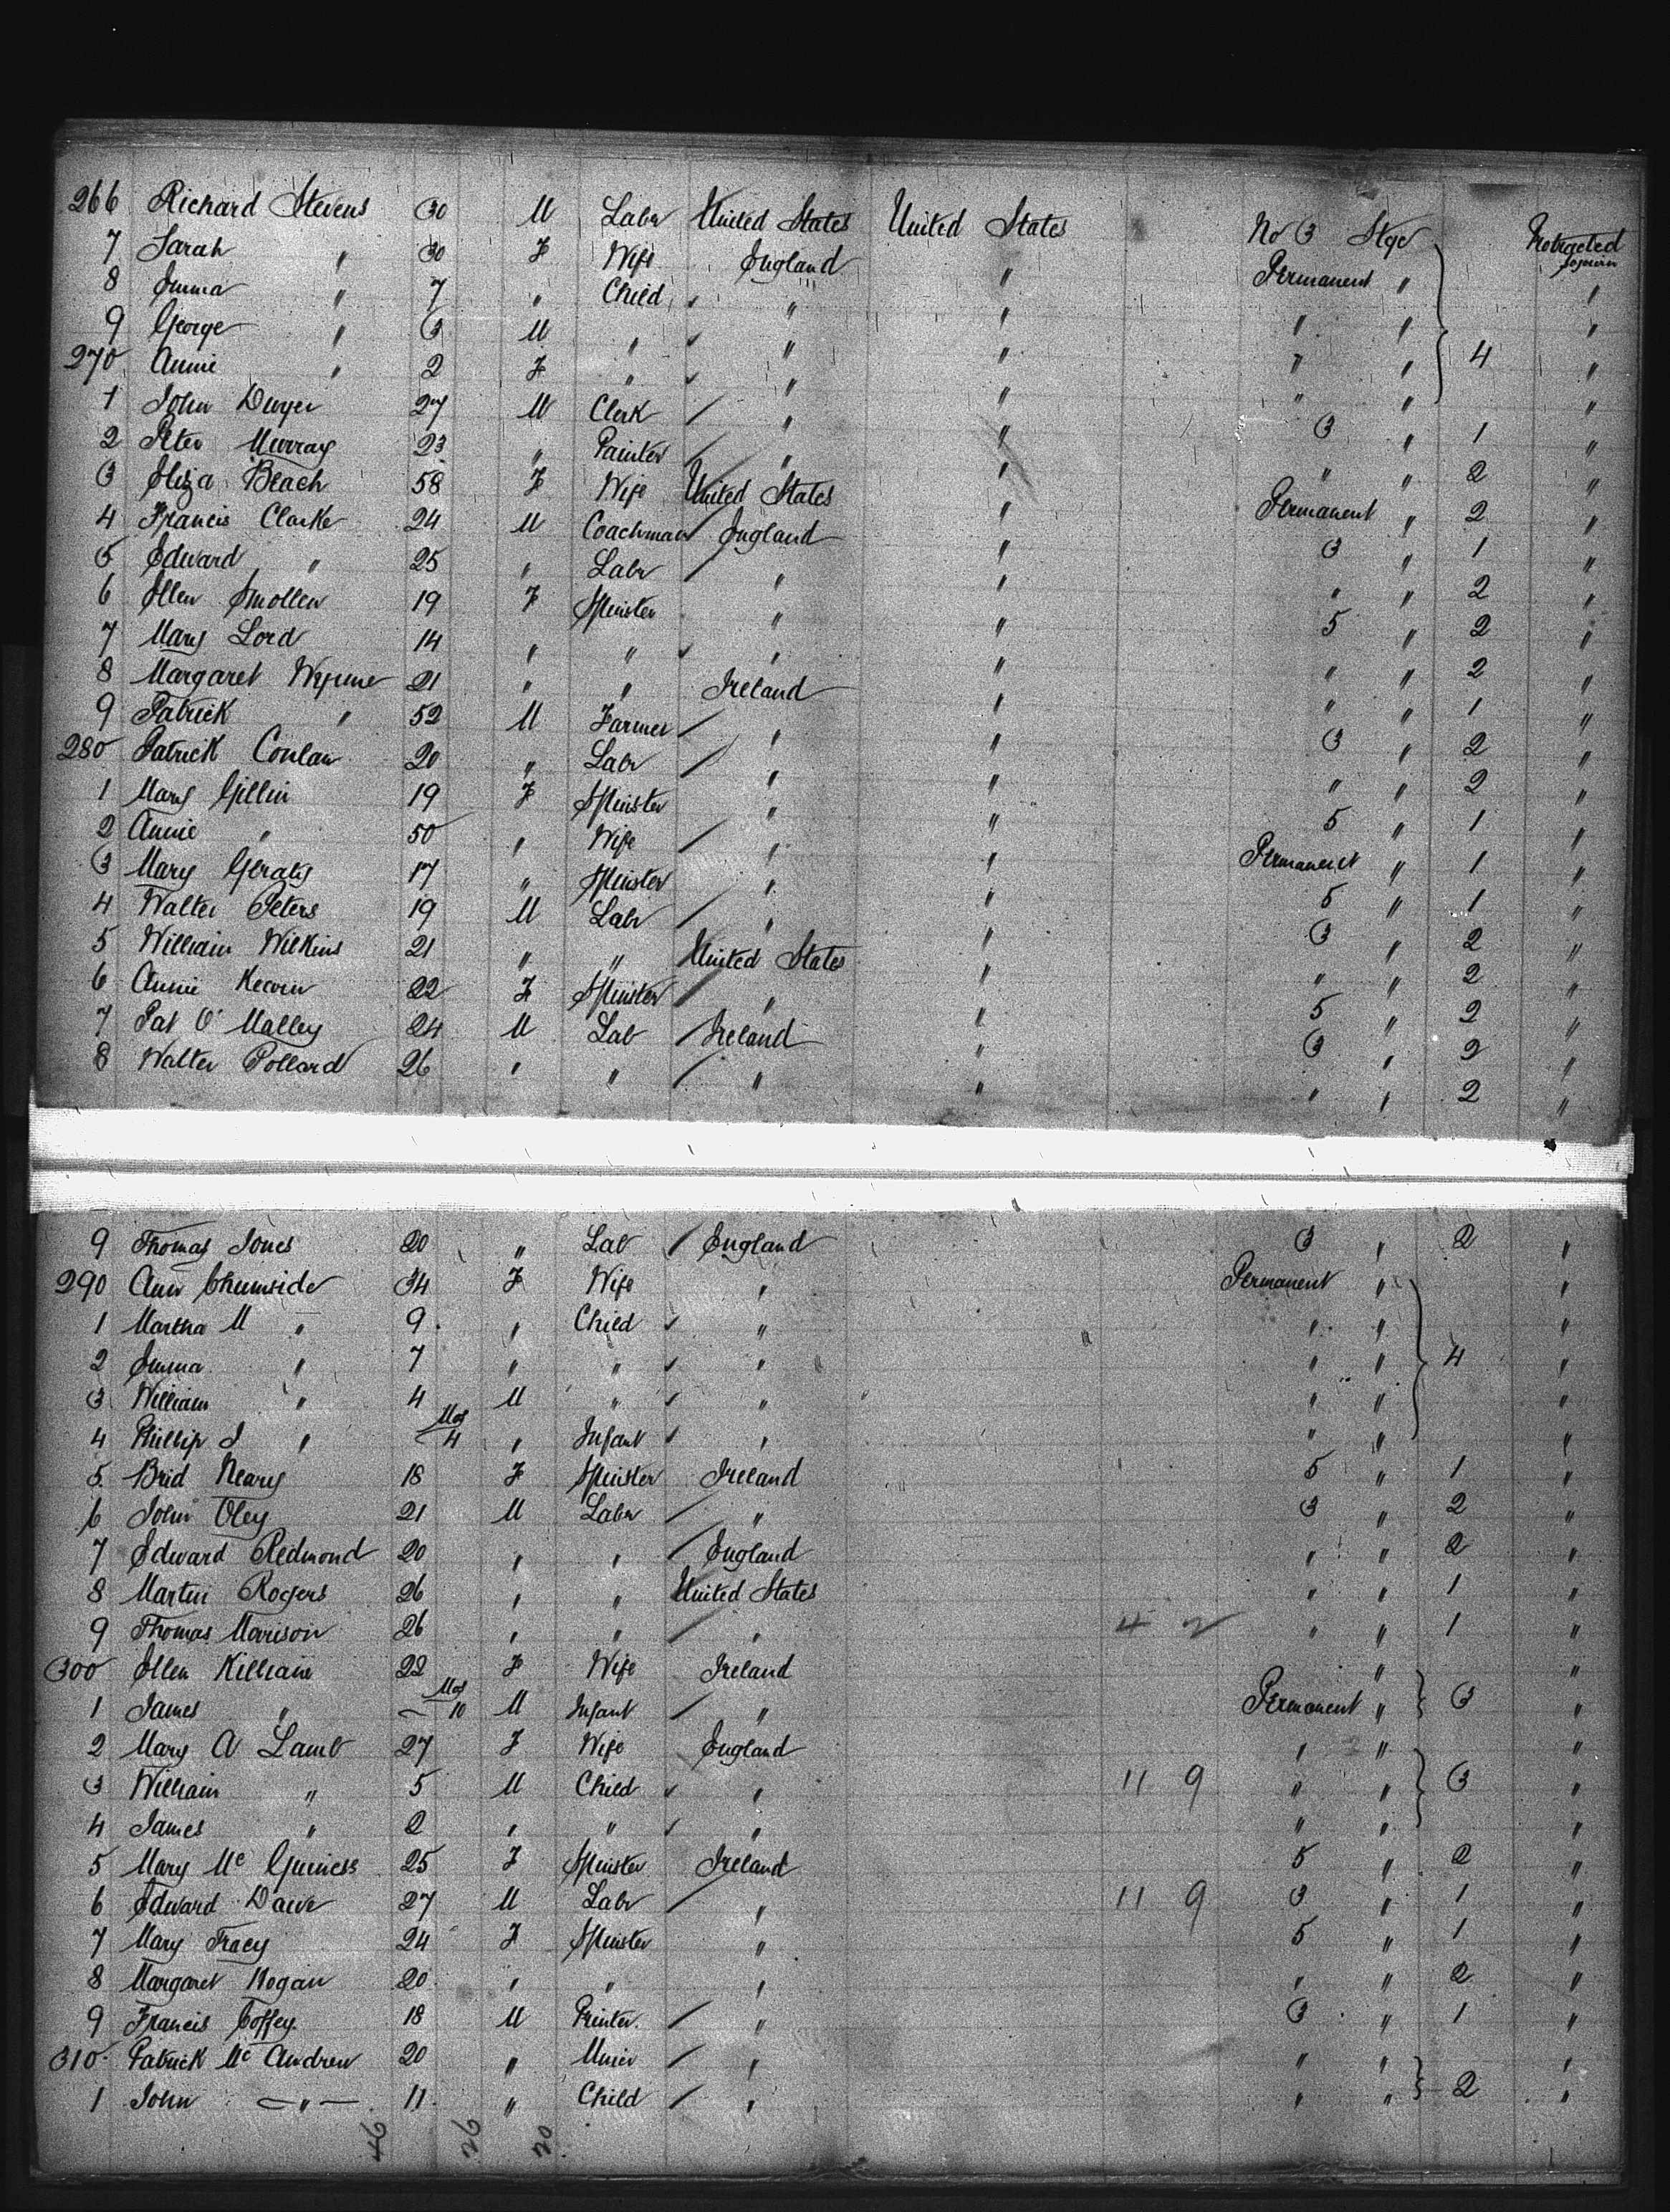 266 Richard Stevens 30 M Labr United States United States No 3 Stge Protracted sojourn
7 Sarah " 30 F Wife England " Permanent " "
8 Emma " 7 " Child " " " " "
9 George " 3 M " " " " " "
270 Annie " 2 F " " " " " 4 "
1 John Dwyer 27 M Clerk " " 3 " 1 "
2 Peter Murray 23 " Painter " " " " 2 "
3 Eliza Beach 58 F Wife United States " Permanent " 2 "
4 Francis Clarke 24 M Coachman England " 3 " 1 "
5 Edward " 25 " Labr " " " " 2 "
6 Ellen Smollen 19 F Spinster " " 5 " 2 "
7 Mary Lord 14 " " " " " " 2 "
8 Margaret 21 " " Ireland " " " 1 "
9 Patrick " 52 M Farmer " " 3 " 2 "
280 Patrick Conlan 20 " Labr " " " " 2 "
1 Mary Gillin 19 F Spinster " " 5 " 1 "
2 Annie " 50 " Wife " " Permanent " 1 "
3 Mary Geraty 17 " Spinster " " 5 " 1 "
4 Walter Peters 19 M Labr " " 3 " 2 "
5 William Wilkins 21 " " United States " " " 2 "
6 Annie 22 F Spinster " " 5 " 2 "
7 Pat O'Malley 24 M Lab Ireland " 3 " 2 "
8 Walter Pollard 26 " " " " " " 2 "
9 Thomas Jones 20 " Lab England 3 " 2 "
290 Ann Chumside 34 F Wife " Permanent " "
1 Martha M " 9 " Child " " " "
2 Emma " 7 " " " " " 4 "
3 William " 4 M " " " " "
4 Phillip J " Mos 4 " Infant " " " "
5 Brid Neary 18 F Spinster Ireland 5 " 1 "
6 John Oley 21 M Labr " 3 " 2 "
7 Edward Redmond 20 " " England " " 2 "
8 Martin Rogers 26 " " United States " " 1 "
9 Thomas Marison 26 " " " 4 2 " " 1 "
300 Ellen Killiain 22 F Wife Ireland " "
1 James " Mos 10 M Infant " Permanent " 3 "
2 Mary A Lamb 27 F Wife England " " "
3 William " 5 M Child " 11 9 " " 3 "
4 James " 2 " " " " " "
5 Mary Mc Guiness 25 F Spinster Ireland 5 " 2 "
6 Edward Dawe 27 M Labr " 11 9 3 " 1 "
7 Mary Tracy 24 F Spinster " 5 " 1 "
8 Margaret Hogan 20 " " " " " 2 "
9 Francis Coffey 18 M Printer " 3 " 1 "
310 Patrick Mc Andrew 20 " Miner " " " "
1 John — " — 11 " Child " " " 2 "
46 26 20